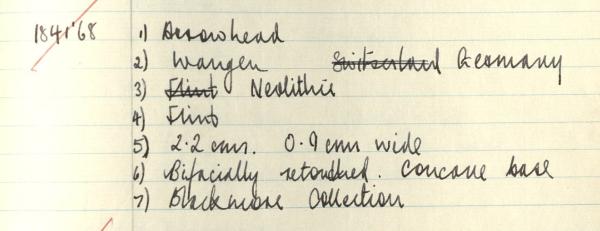 1841'68 1) Arrowhead
2) Wangen Switzerland Germany
3) Flint Neolithic
4) Flint
5) 2.2 cms. 0.9 cms wide
6) Bifacially retouched. Concave base
7) Blackmore Collection